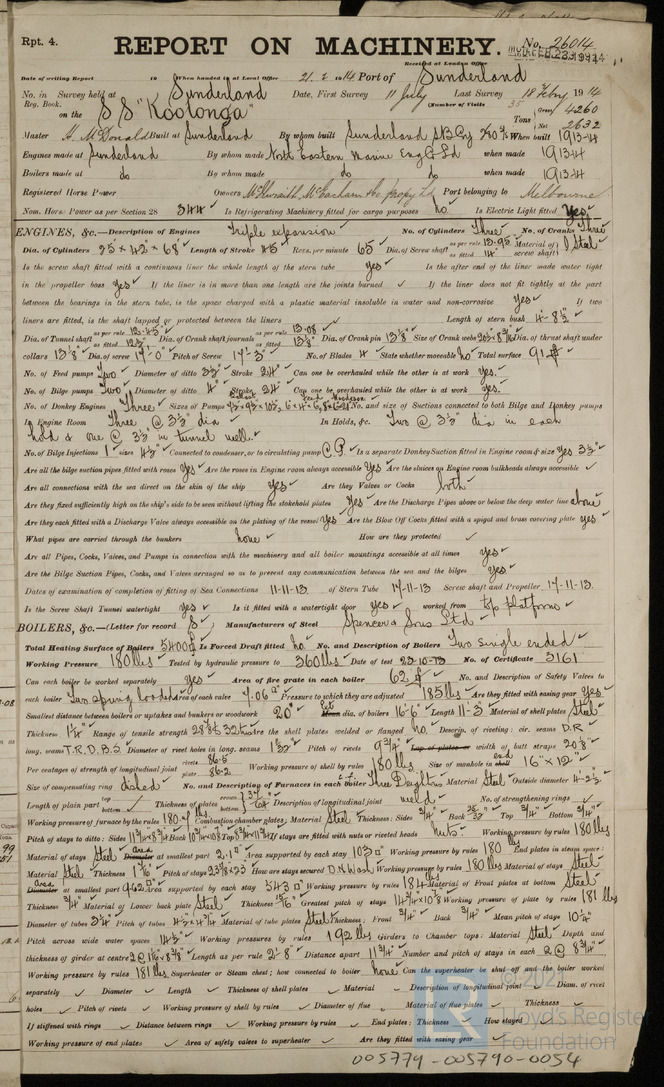 Rpt. 4.
REPORT ON MACHINERY.
No. 26014
Received at London Office
MON. FEB. 23. 1914
Date of writing Report 19 When handed in at Local Office 21. 2 1914 Port of Sunderland
No. in Survey held at Sunderland Date, First Survey 11 July Last Survey 18 Febry 1914
Reg. Book. (Number of Visits 35
on the S S "Koolonga" Tons Gross 4260 Net 2632
Master Built at Sunderland By whom built Sunderland S.B.Cy When built 1913-4
Engines made at Sunderland By whom made North Eastern Marine Eng Co Ld when made 1913-4
Boilers made at do By whom made do do when made 1913-4
Registered Horse Power Owners McIlwraith McEacharn Port belonging to Melbourne
Nom. Horse Power as per Section 28 344 Is Refrigerating Machinery fitted for cargo purposes No. Is Electric Light fitted Yes
ENGINES, &c.—Description of Engines Triple expansion No. of Cylinders Three No. of Cranks Three
Dia. of Cylinders 25" × 42" × 68" Length of Stroke 45 Revs. per minute 65 Dia. of Screw shaft as per rule 13.95 as fitted 14" Material of screw shaft Steel
Is the screw shaft fitted with a continuous liner the whole length of the stern tube Yes Is the after end of the liner made water tight
in the propeller boss Yes If the liner is in more than one length are the joints burned ✓ If the liner does not fit tightly at the part
between the bearings in the stern tube, is the space charged with a plastic material insoluble in water and non-corrosive Yes If two
liners are fitted, is the shaft lapped or protected between the liners ✓ Length of stern bush 4'-8½"
Dia. of Tunnel shaft as per rule 12.45 as fitted Dia. of Crank shaft journals as per rule 13.08 as fitted 13⅛" Dia. of Crank pin 13⅛" Size of Crank webs Dia. of thrust shaft under
collars 13⅛" Dia. of screw 17'-0" Pitch of Screw 17'-3" No. of Blades 4 State whether moveable No Total surface 91
No. of Feed pumps Two Diameter of ditto 3½" Stroke 24" Can one be overhauled while the other is at work Yes.
No. of Bilge pumps Two Diameter of ditto 4" Stroke 24 Can one be overhauled while the other is at work Yes.
No. of Donkey Engines Three Sizes of Pumps No. and size of Suctions connected to both Bilge and Donkey pumps
In Engine Room Three @ 3½" dia In Holds, &c. Two @ 3½" dia in each
hold & one @ 3½" in tunnel well.
No. of Bilge Injections 1 sizes 4½" Connected to condenser, or to circulating pump C.P. Is a separate Donkey Suction fitted in Engine room & size Yes 3½"
Are all the bilge suction pipes fitted with roses Yes Are the roses in Engine room always accessible Yes Are the sluices on Engine room bulkheads always accessible ✓
Are all connections with the sea direct on the skin of the ship Yes Are they Valves or Cocks both
Are they fixed sufficiently high on the ship's side to be seen without lifting the stokehold plates Yes Are the Discharge Pipes above or below the deep water line above
Are they each fitted with a Discharge Valve always accessible on the plating of the vessel Yes Are the Blow Off Cocks fitted with a spigot and brass covering plate yes
What pipes are carried through the bunkers none How are they protected ✓
Are all Pipes, Cocks, Valves, and Pumps in connection with the machinery and all boiler mountings accessible at all times Yes
Are the Bilge Suction Pipes, Cocks, and Valves arranged so as to prevent any communication between the sea and the bilges Yes
Dates of examination of completion of fitting of Sea Connections 11-11-13 of Stern Tube 17-11-13 Screw shaft and Propeller 17-11-13
Is the Screw Shaft Tunnel watertight Yes Is it fitted with a watertight door Yes worked from top platform
BOILERS, &c.—(Letter for record S) Manufacturers of Steel Spencer & Sons Ltd
Total Heating Surface of Boilers 5400 Is Forced Draft fitted No No. and Description of Boilers Two single ended
Working Pressure 180 lbs Tested by hydraulic pressure to 360 lbs Date of test 23-10-13 No. of Certificate 3161
Can each boiler be worked separately Yes Area of fire grate in each boiler 62 No. and Description of Safety Valves to
each boiler Two spring loaded Area of each valve 7.06 Pressure to which they are adjusted 185 lbs Are they fitted with easing gear Yes
Smallest distance between boilers or uptakes and bunkers or woodwork 20" dia. of boilers 16'-6" Length 11'-3" Material of shell plates Steel
Thickness 1¼" Range of tensile strength 28 & 32 Are the shell plates welded or flanged No Descrip. of riveting: cir. seams D.R
long. seams T.R.D.B.S. Diameter of rivet holes in long. seams Pitch of rivets 9¾" Lap of plates or width of butt straps 20⅛"
Per centages of strength of longitudinal joint rivets 86.5 plate 86.2 Working pressure of shell by rules 180 lbs Size of manhole in end 16" × 12"
Size of compensating ring dished No. and Description of Furnaces in each boiler Three Deightons Material Steel Outside diameter 4'-2½"
Length of plain part top bottom Thickness of plates crown bottom Description of longitudinal joint weld No. of strengthening rings
Working pressure of furnace by the rules 180.4 lbs Combustion chamber plates: Material Steel Thickness: Sides ¾" Back Top ¾" Bottom ¾"
Pitch of stays to ditto: Sides Back Top If stays are fitted with nuts or riveted heads Nuts Working pressure by rules 180 lbs
Material of stays Steel Area at smallest part 2.1 Area supported by each stay 103 Working pressure by rules 180 End plates in steam space:
Material Steel Thickness Pitch of stays How are stays secured D.N.& Was. Working pressure by rules 180 lbs Material of stays Steel
Area at smallest part Area supported by each stay 543 Working pressure by rules 184 lbs Material of Front plates at bottom Steel
Thickness ¾" Material of Lower back plate Steel Thickness Greatest pitch of stays Working pressure of plate by rules 181 lbs
Diameter of tubes 3¼" Pitch of tubes Material of tube plates Steel Thickness: Front ¾" Back ¾" Mean pitch of stays
Pitch across wide water spaces 14½" Working pressures by rules 192 lbs Girders to Chamber tops: Material Steel Depth and
thickness of girder at centre Length as per rule 2'-8" Distance apart 11¾" Number and pitch of stays in each 2 @ 8¾"
Working pressure by rules 181 lbs. Superheater or Steam chest; how connected to boiler none Can the superheater be shut off and the boiler worked
separately ✓ Diameter ✓ Length ✓ Thickness of shell plates ✓ Material ✓ Description of longitudinal joint ✓ Diam. of rivet
holes ✓ Pitch of rivets ✓ Working pressure of shell by rules ✓ Diameter of flue ✓ Material of flue plates ✓ Thickness ✓
If stiffened with rings ✓ Distance between rings ✓ Working pressure by rules ✓ End plates: Thickness ✓ How stayed ✓
Working pressure of end plates ✓ Area of safety valves to superheater ✓ Are they fitted with easing gear ✓
© 2021
Lloyd's Register
Foundation
005779-005790-0054